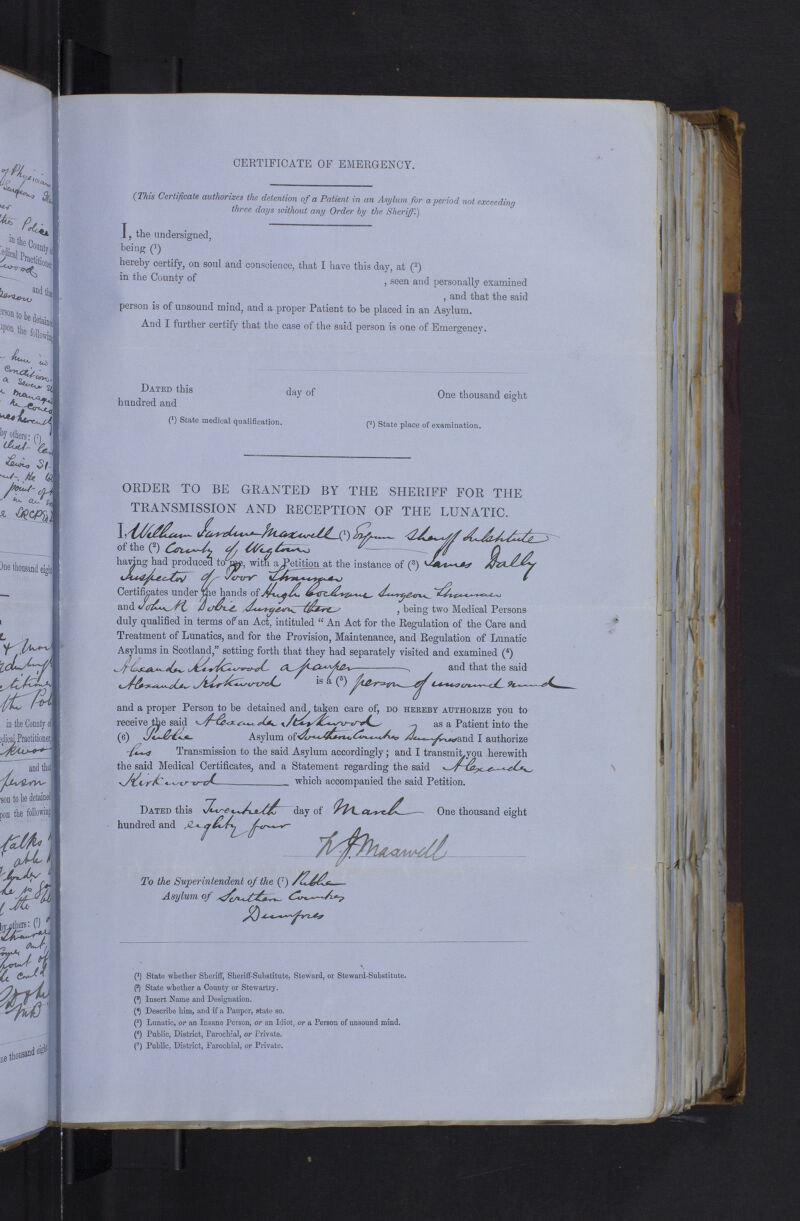 CERTIFICATE OF EMERGENCY.
(This Certificate authorizes the detention of a Patient in an Asylum for a period not exceeding
three days without any Order by the Sheriff.)
I, the undersigned,
being (¹)
hereby certify, on soul and conscience, that I have this day, at (²)
in the County of , seen and personally examined
, and that the said
person is of unsound mind, and a proper Patient to be placed in an Asylum.
And I further certify that the case of the said person is one of Emergency.
DATED this day of One thousand eight
hundred and
(¹) State medical qualification. (²) State place of examination.
ORDER TO BE GRANTED BY THE SHERIFF FOR THE
TRANSMISSION AND RECEPTION OF THE LUNATIC.
I, William Jardine Maxwell (¹) Esquire Sheriff Substitute
of the (²) County of Wigtown
having had produced to me, with a Petition at the instance of (³) James Dally
Inspector of Poor Stranraer
Certificates under the hands of Hugh Cochrane Surgeon Stranraer
and John R Dobie Surgeon there , being two Medical Persons
duly qualified in terms of an Act, intituled “ An Act for the Regulation of the Care and
Treatment of Lunatics, and for the Provision, Maintenance, and Regulation of Lunatic
Asylums in Scotland,” setting forth that they had separately visited and examined (⁴)
Alexander Kirkwood a pauper and that the said
Alexander Kirkwood is a (⁵) person of unsound mind
and a proper Person to be detained and taken care of, DO HEREBY AUTHORIZE you to
receive the said Alexander Kirkwood as a Patient into the
(6) Public Asylum of Southern Counties Dumfries and I authorize
his Transmission to the said Asylum accordingly ; and I transmit you herewith
the said Medical Certificates, and a Statement regarding the said Alexander
Kirkwood which accompanied the said Petition.
DATED this Twentieth day of March One thousand eight
hundred and eighty four
W. J. Maxwell
To the Superintendent of the (⁷) Public
Asylum of Southern Counties
Dumfries
(¹) State whether Sheriff, Sheriff-Substitute, Steward, or Steward-Substitute.
(²) State whether a County or Stewartry.
(³) Insert Name and Designation.
(⁴) Describe him, and if a Pauper, state so.
(⁵) Lunatic, or an Insane Person, or an Idiot, or a Person of unsound mind.
(⁶) Public, District, Parochial, or Private.
(⁷) Public, District, Parochial, or Private.